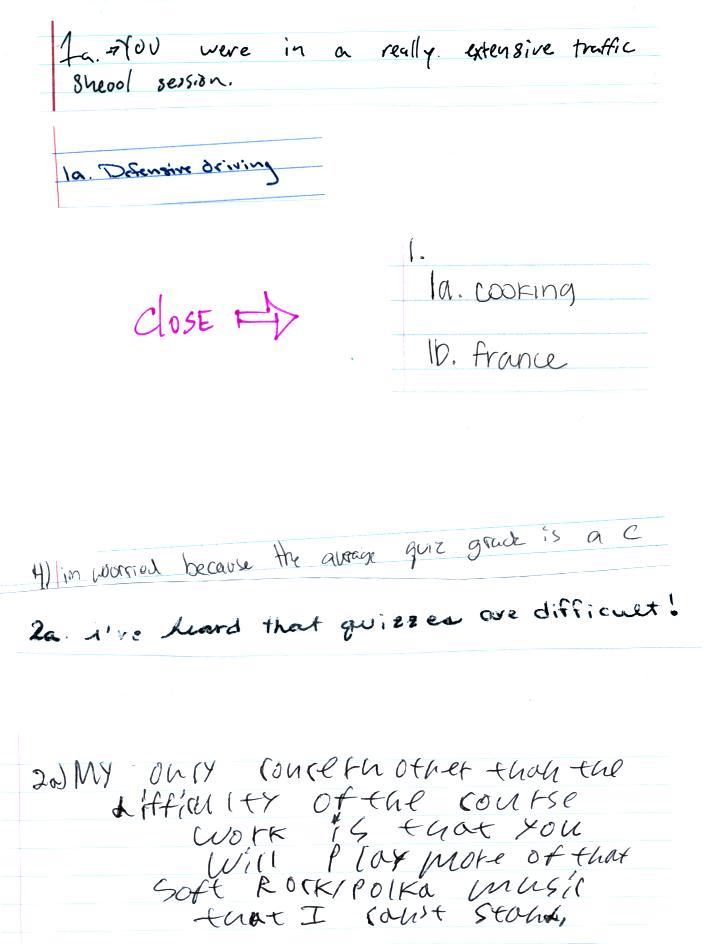 1a. → You were in a really extensive traffic
sheool session.
1a. Defensive driving
1.
1a. cooking
Close
1b. france
4) im worried because the average quiz grade is a C
2a. i've heard that quizzes are difficult!
2a) My only concern other than the
difficulty of the course
work is that you
will play more of that
soft Rock/Polka music
that I can't stand,